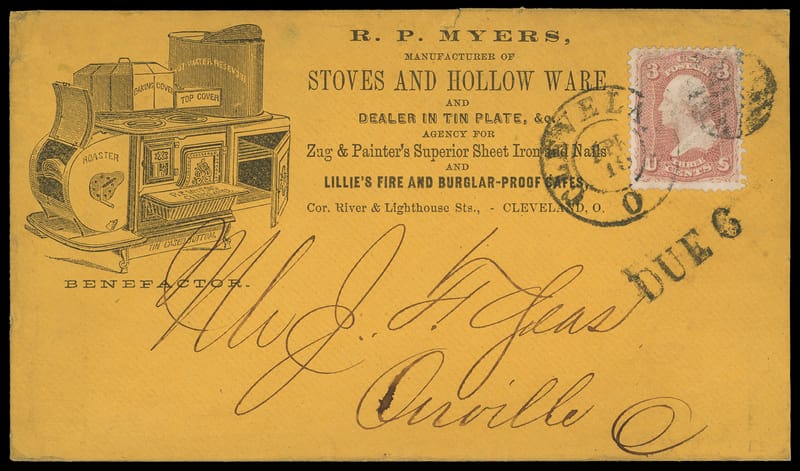 R. P. MYERS,
MANUFACTURER OF
STOVES AND HOLLOW WARE,
AND
DEALER IN TIN PLATE, &c.
AGENCY FOR
Zug & Painter's Superior Sheet Iron and Nails
AND
LILLIE'S FIRE AND BURGLAR-PROOF SAFES,
Cor. River & Lighthouse Sts., - CLEVELAND, O.
HOT WATER RESERVOIR
ROASTING COVER
TOP COVER
ROASTER
TIN CASED BOTTOM
BENEFACTOR.
3 3
U THREE CENTS S
CLEVELA
O
DUE 6
J. F. Yeas
Orville O